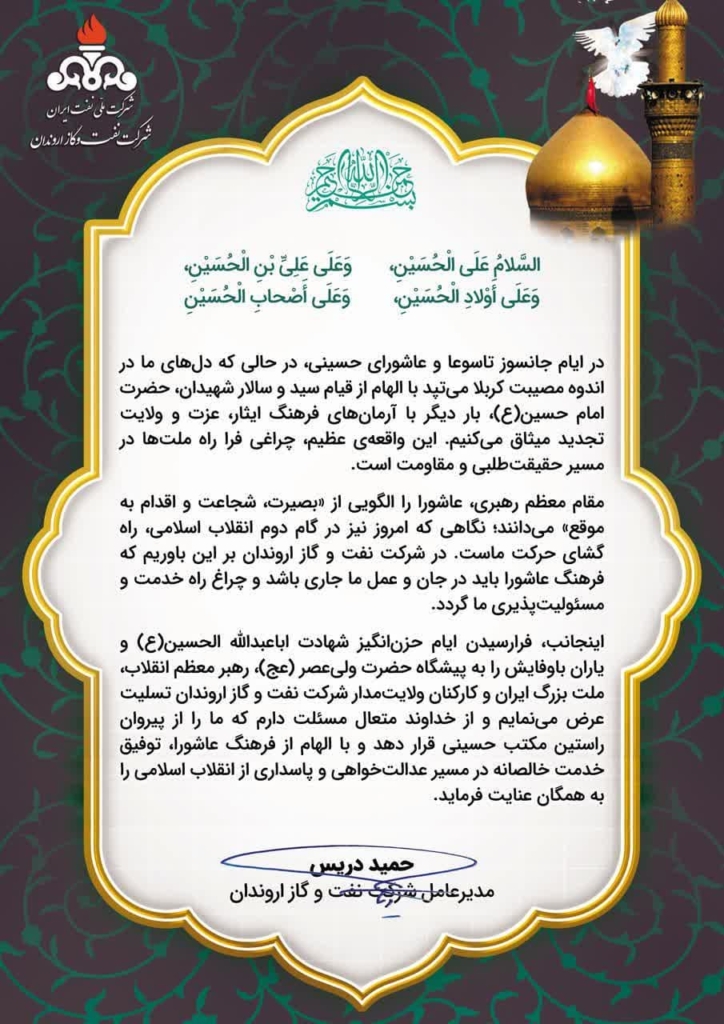 شرکت ملی نفت ایران
شرکت نفت و گاز اروندان
بسم الله الرحمن الرحیم
السَّلامُ عَلَى الْحُسَيْنِ، وَعَلَى عَلِيِّ بْنِ الْحُسَيْنِ،
وَعَلَى أَوْلادِ الْحُسَيْنِ، وَعَلَى أَصْحابِ الْحُسَيْنِ
در ایام جانسوز تاسوعا و عاشورای حسینی، در حالی که دل‌های ما در
اندوه مصیبت کربلا می‌تپد با الهام از قیام سید و سالار شهیدان، حضرت
امام حسین(ع)، بار دیگر با آرمان‌های فرهنگ ایثار، عزت و ولایت
تجدید میثاق می‌کنیم. این واقعه‌ی عظیم، چراغی فرا راه ملت‌ها در
مسیر حقیقت‌طلبی و مقاومت است.
مقام معظم رهبری، عاشورا را الگویی از «بصیرت، شجاعت و اقدام به
موقع» می‌دانند؛ نگاهی که امروز نیز در گام دوم انقلاب اسلامی، راه
گشای حرکت ماست. در شرکت نفت و گاز اروندان بر این باوریم که
فرهنگ عاشورا باید در جان و عمل ما جاری باشد و چراغ راه خدمت و
مسئولیت‌پذیری ما گردد.
اینجانب، فرارسیدن ایام حزن‌انگیز شهادت اباعبدالله الحسین(ع) و
یاران باوفایش را به پیشگاه حضرت ولی‌عصر (عج)، رهبر معظم انقلاب،
ملت بزرگ ایران و کارکنان ولایت‌مدار شرکت نفت و گاز اروندان تسلیت
عرض می‌نمایم و از خداوند متعال مسئلت دارم که ما را از پیروان
راستین مکتب حسینی قرار دهد و با الهام از فرهنگ عاشورا، توفیق
خدمت خالصانه در مسیر عدالت‌خواهی و پاسداری از انقلاب اسلامی را
به همگان عنایت فرماید.
حمید دریس
مدیرعامل شرکت نفت و گاز اروندان